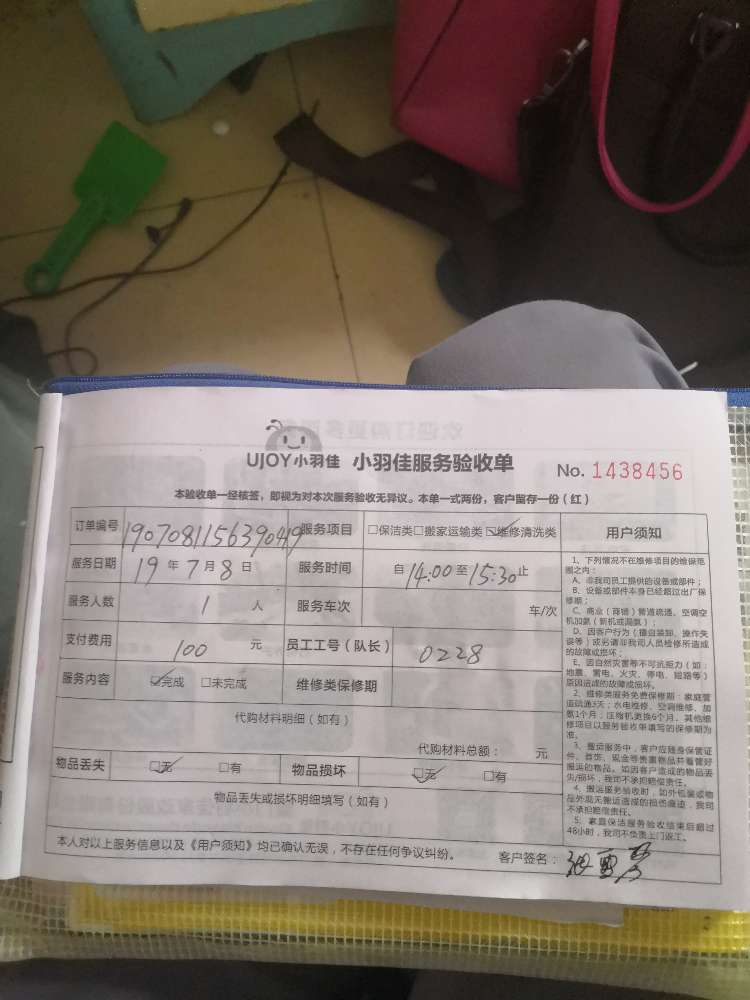 UJOY小羽佳 小羽佳服务验收单 No. 1438456
本验收单一经核签，即视为对本次服务验收无异议。本单一式两份，客户留存一份（红）
订单编号 190708115639049 服务项目 □保洁类□搬家运输类☑维修清洗类
服务日期 19 年 7 月 8 日 服务时间 自 14:00 至 15:30 止
服务人数 1 人 服务车次 车/次
支付费用 100 元 员工工号（队长） 0228
服务内容 ☑完成 □未完成 维修类保修期
代购材料明细（如有）
代购材料总额： 元
物品丢失 ☑无 □有 物品损坏 ☑无 □有
物品丢失或损坏明细填写（如有）
本人对以上服务信息以及《用户须知》均已确认无误，不存在任何争议纠纷。 客户签名：
用户须知
1、下列情况不在维修项目的维保范
围之内：
A、非我司员工提供的设备或部件；
B、设备或部件本身已经超过出厂保
修期；
C、商业（商铺）管道疏通、空调空
机加氟（新机或漏氟）；
D、因客户行为（擅自装卸、操作失
误等）或另请非我司人员检修所造成
的故障或损坏；
E、因自然灾害等不可抗拒力（如：
地震、雷电、火灾、停电、短路等）
原因造成的故障或损坏。
2、维修类服务免费保修期：家庭管
道疏通3天；水电维修、空调维修、加
氟1个月；压缩机更换6个月，其他维
修项目以服务验收单填写的保修期为
准。
3、搬运服务中，客户应随身保管证
件、首饰、现金等贵重物品并看管好
搬运的物品。如因客户造成的物品丢
失/损坏，我司不承担赔偿责任。
4、搬运服务验收时，如外包装或物
品外观无搬运造成的损伤痕迹，我司
不承担赔偿责任。
5、家庭保洁服务验收结束后超过
48小时，我司不负责上门返工。